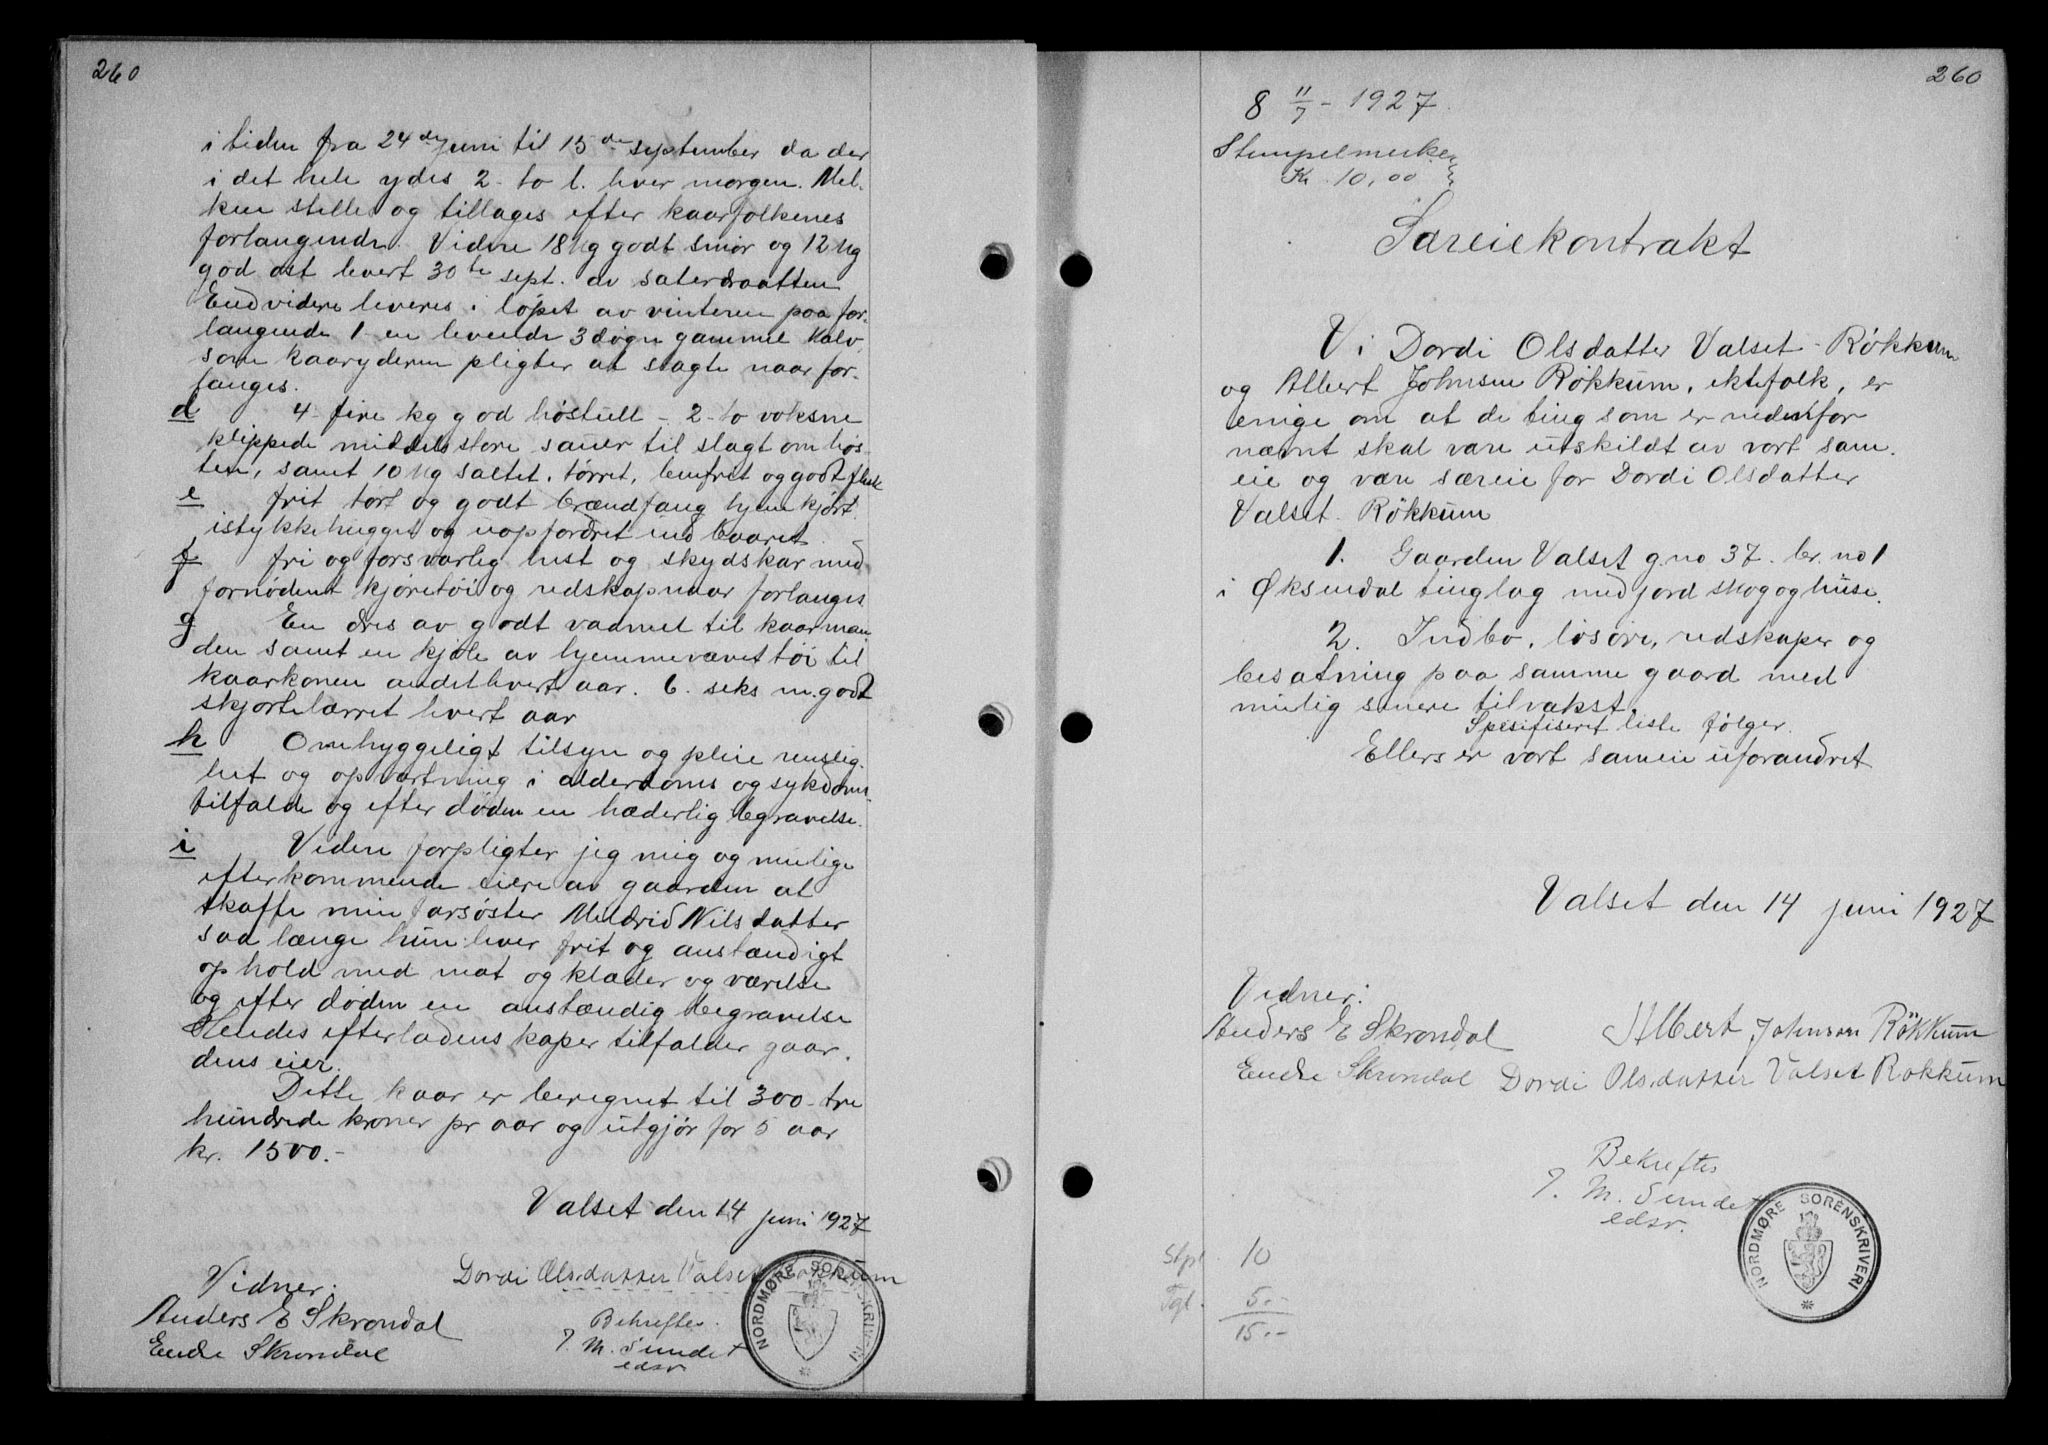 260
i tiden fra 24de juni til 15de september da der
i det hele ydes 2- to l. hver morgen. Mel-
ken stelles og tillages efter kaarfolkenes
forlangende. Videre 18 kg godt smør og 12 kg
god ost levert 30te sept. av sæterdraatten
Endvidere leveres i løpet av vinteren paa for-
langende 1- en levende 3 døgn gammel kalv
som kaaryderen pligter at slagte naar for-
langes.
d 4- fire kg god høstull - 2- to voksne
klippede middelsstore sauer til slagt om høs-
ten, samt 10 kg saltet, tørret, benfrit og godt flesk
e frit tørt og godt brændfang hjemkjørt
istykkehugget og uopfordret indbaaret.
f fri og forsvarlig hest og skydskar med
fornødent kjøretøi og redskap naar forlanges
g En dres av godt vadmel til kaarman
den samt en kjole av hjemmevævet tøi til
kaarkonen andethvert aar. 6. seks m. godt
skjortelærret hvert aar
h Omhyggeligt tilsyn og pleie renslig-
het og opvartning i alderdoms og sykdoms-
tilfælde og efter døden en hæderlig begravelse.
i Videre forpligter jeg mig og mulige
efterkommende eiere av gaarden at
skaffe min farsøster Meldrid Nilsdatter
saa længe hun lever frit og anstændigt
ophold med mat og klæder og værelse
og efter døden en anstændig begravelse
Hendes efterladenskaper tilfalder gaar-
dens eier.
Dette kaar er beregnet til 300- tre
hundrede kroner pr aar og utgjør for 5 aar
kr. 1500.-
Valset den 14 juni 1927
Dordi Olsdatter Valset Røkkum
Vidner:
Anders E Skrondal
Endre Skrondal
Bekreftes.
J. M. Sundet
edsv.
NORDMØRE SORENSKRIVERI
260
8 11/7 - 1927.
Stempelmerke
Kr. 10,00
Særeiekontrakt
Vi Dordi Olsdatter Valset - Røkkum
og Albert Johnsen Røkkum, ektefolk, er
enige om at de ting som er nedenfor
nævnt skal være utskildt av vort sam-
eie og være særeie for Dordi Olsdatter
Valset - Røkkum
1. Gaarden Valset g.no 37. br. no 1
i Øksendal tinglag med jord skog og huse.
2. Indbo, løsøre, redskaper og
besætning paa samme gaard med
mulig senere tilvækst.
Spesifiseret liste følger.
Ellers er vort sameie uforandret
Valset den 14 juni 1927
Vidner:
Anders E Skrondal
Endre Skrondal
Albert Johnsen Røkkum
Dordi Olsdatter Valset Røkkum
Bekreftes
J. M. Sundet
edsv.
NORDMØRE SORENSKRIVERI
Stpl. 10
Tgl. 5.-
15.-